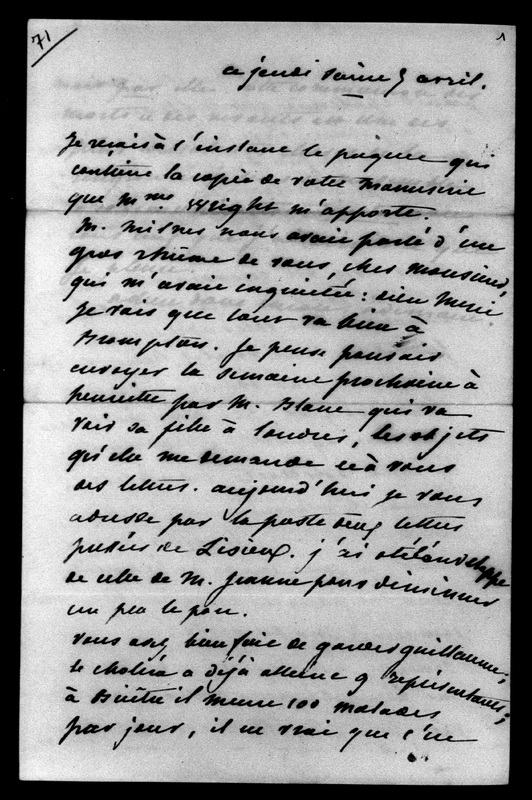 71
1
ce jeudi saint 5 avril.
Je reçois à l'instant le paquet qui
contient la copie de votre manuscrit
que Mme Wright m'apporte.
M. Milnes nous avait parlé d'un
gros rhume de vous, cher monsieur,
qui m'avait inquiétée : dieu merci
je vois que tout va bien à
Brompton. Je pense pouvoir
envoyer la semaine prochaine à
henriette par M. Blanc qui va
voir sa fille à Londres, les objets
qu'elle me demande et à vous
des lettres. aujourd'hui je vous
adresse par la poste deux lettres
de Lisieux. j'ai ôté l'enveloppe
de celle de M. Jeanne pour diminuer
un peu le port.
vous avez bien fait de garder guillaume ;
le choléra a déjà atteint 9 représentants ;
à il meurt 100 malades
par jour, il est vrai que c'est